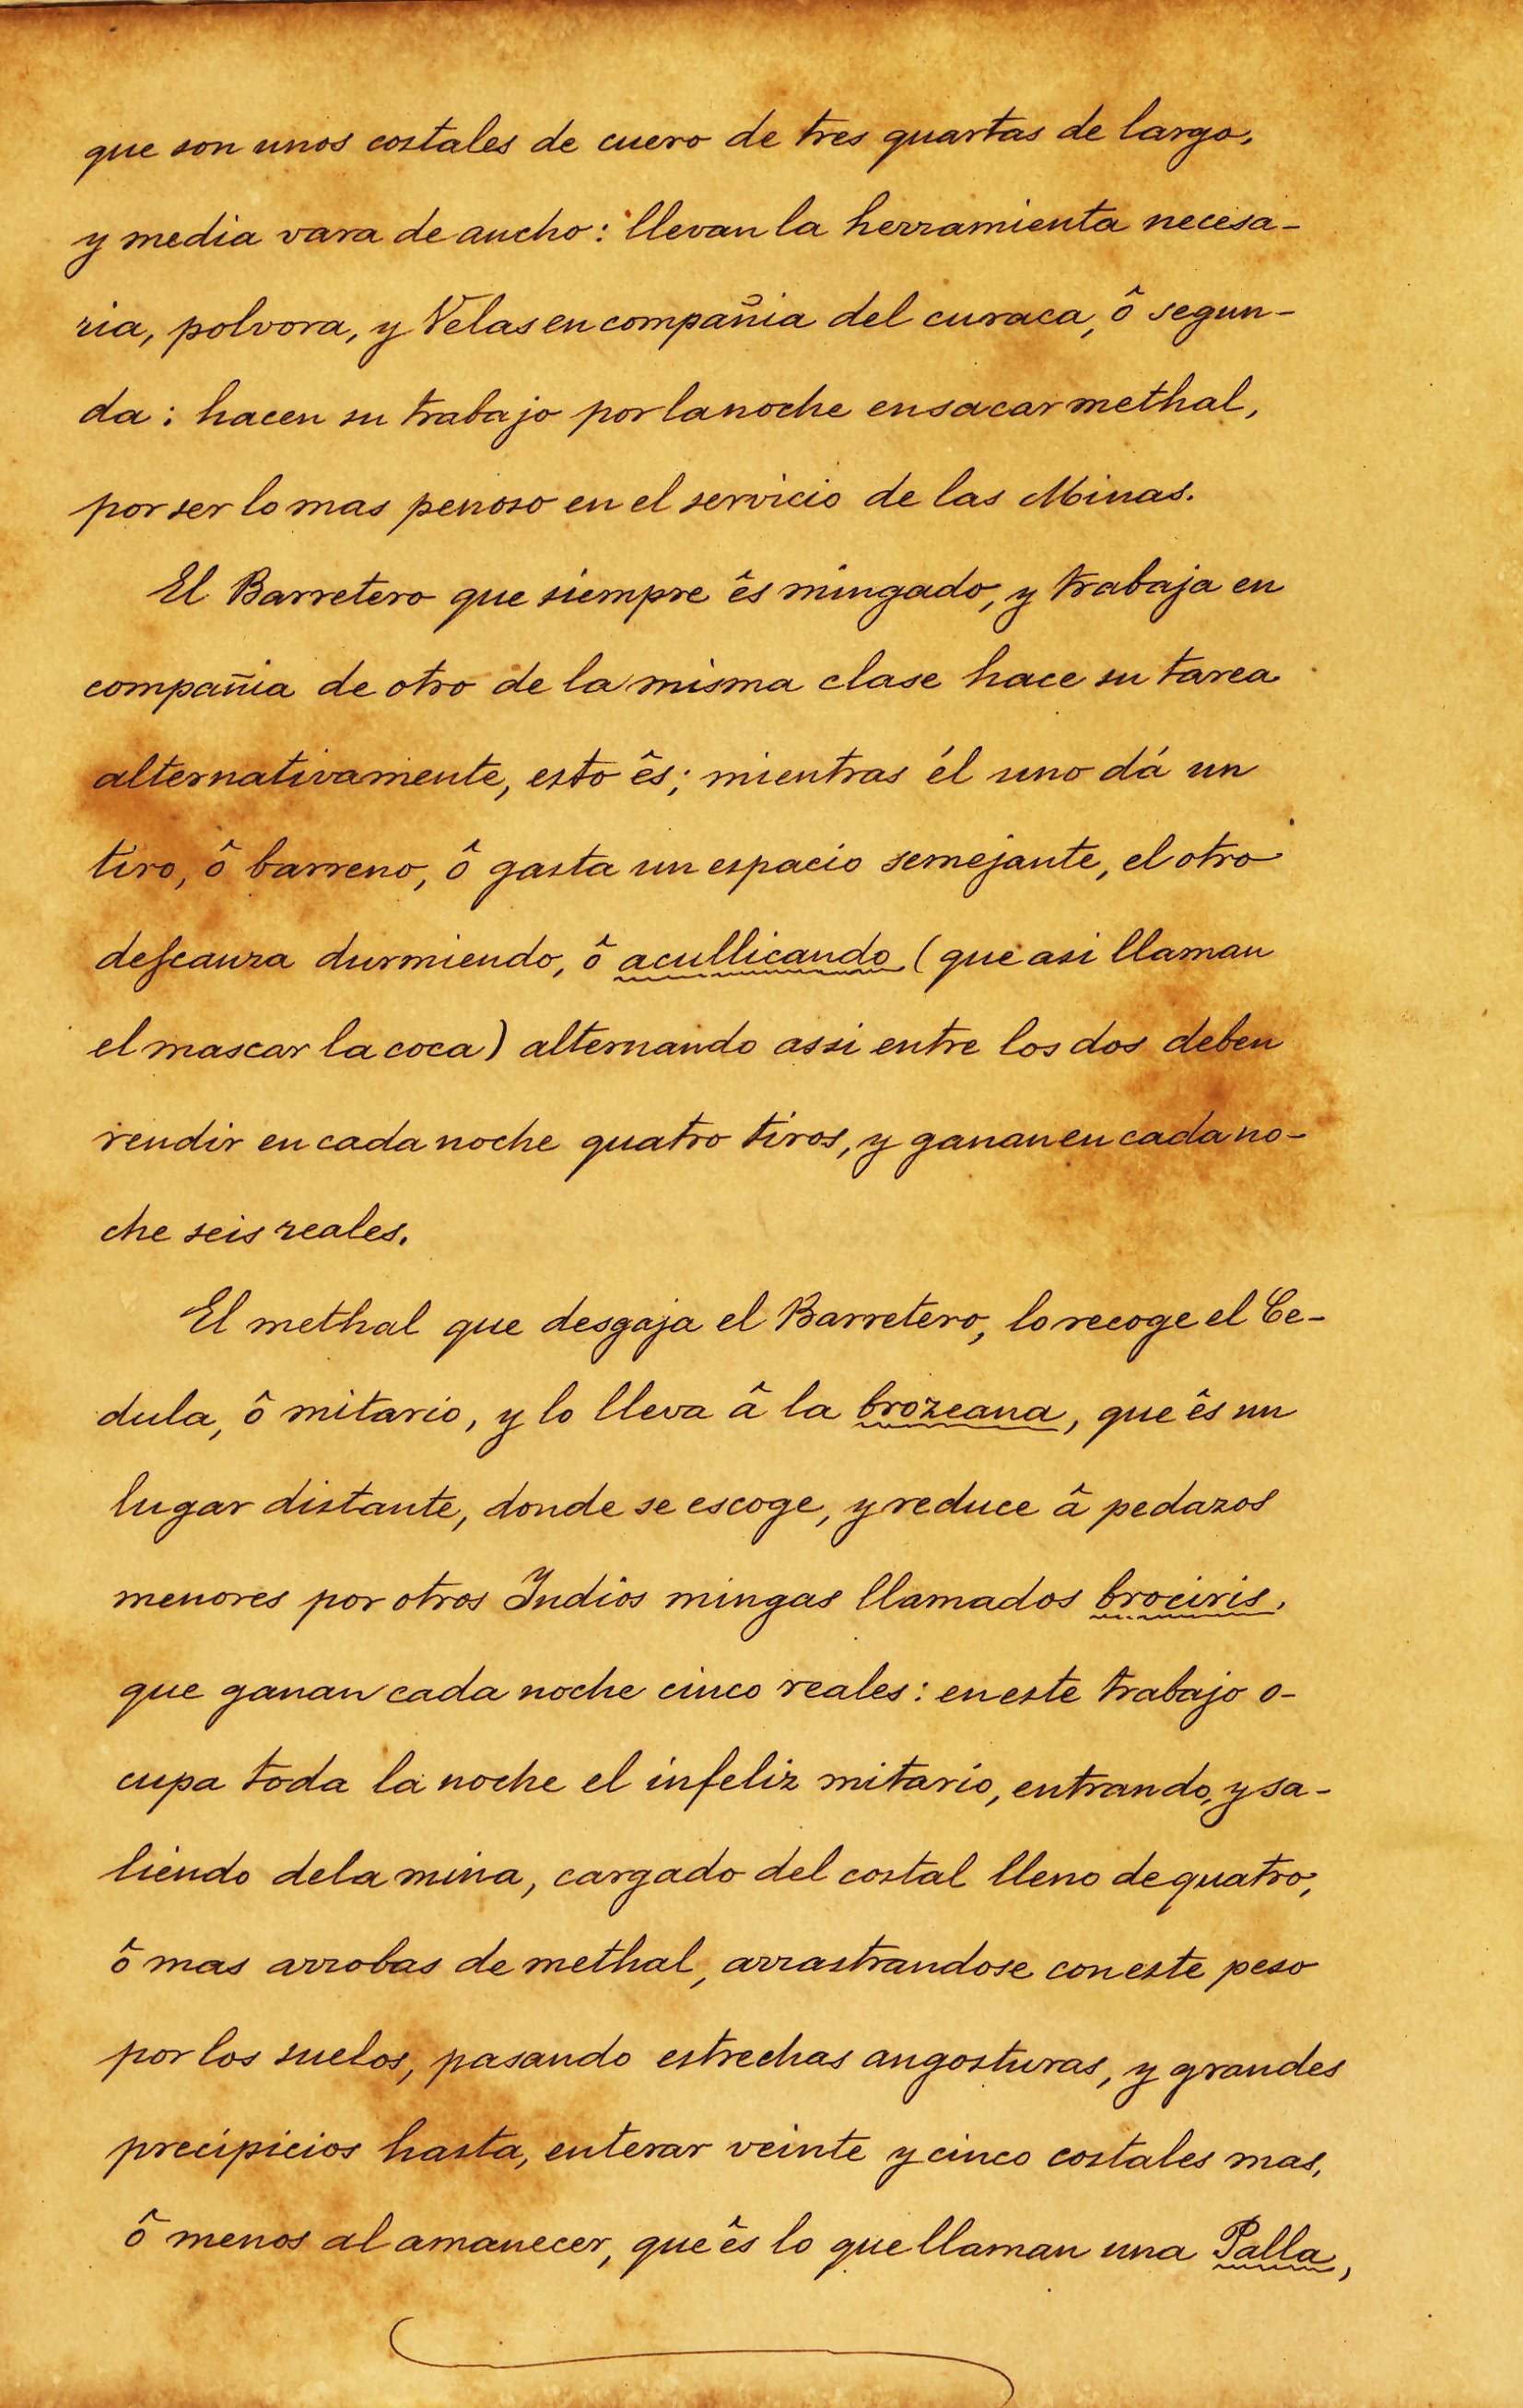 que son unos costales de cuero de tres quartas de largo,
y media vara de ancho: llevan la herramienta necesa-
ria, polvora, y Velas en compañia del curaca, ô segun-
da: hacen su trabajo por la noche en sacar methal,
por ser lo mas penoso en el servicio de las Minas.
El Barretero que siempre ês mingado, y trabaja en
compañia de otro de la misma clase hace su tarea
alternativamente, esto ês; mientras él uno dá un
tiro, ô barreno, ô gasta un espacio semejante, el otro
descanza durmiendo, ô acullicando (que asi llaman
el mascar la coca) alternando assi entre los dos deben
rendir en cada noche quatro tiros, y ganan en cada no-
che seis reales.
El methal que desgaja el Barretero, lo recoge el Ce-
dula, ô mitario, y lo lleva â la brozeana, que ês un
lugar distante, donde se escoge, y reduce â pedazos
menores por otros Indios mingas llamados brociris,
que ganan cada noche cinco reales: en este trabajo o-
cupa toda la noche el infeliz mitario, entrando, y sa-
liendo de la mina, cargado del costal lleno de quatro,
ô mas arrobas de methal, arrastrandose con este peso
por los suelos, pasando estrechas angosturas, y grandes
precipicios hasta, enterar veinte y cinco costales mas,
ô menos al amanecer, que ês lo que llaman una Palla,